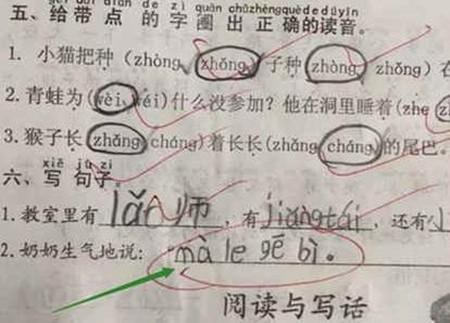 五、给带点的字圈出正确的读音。
1. 小猫把种（zhòng、zhǒng）子种（zhòng、zhǒng）在
2. 青蛙为（wèi、wéi）什么没参加？他在洞里睡着（zhe
3. 猴子长（zhǎng、cháng）着长长（zhǎng、cháng）的尾巴。
xiě jù zi
六、写句子。
1. 教室里有 lǎo师，有 jiǎngtái，还有
2. 奶奶生气地说：mà le gē bì。
阅读与写话